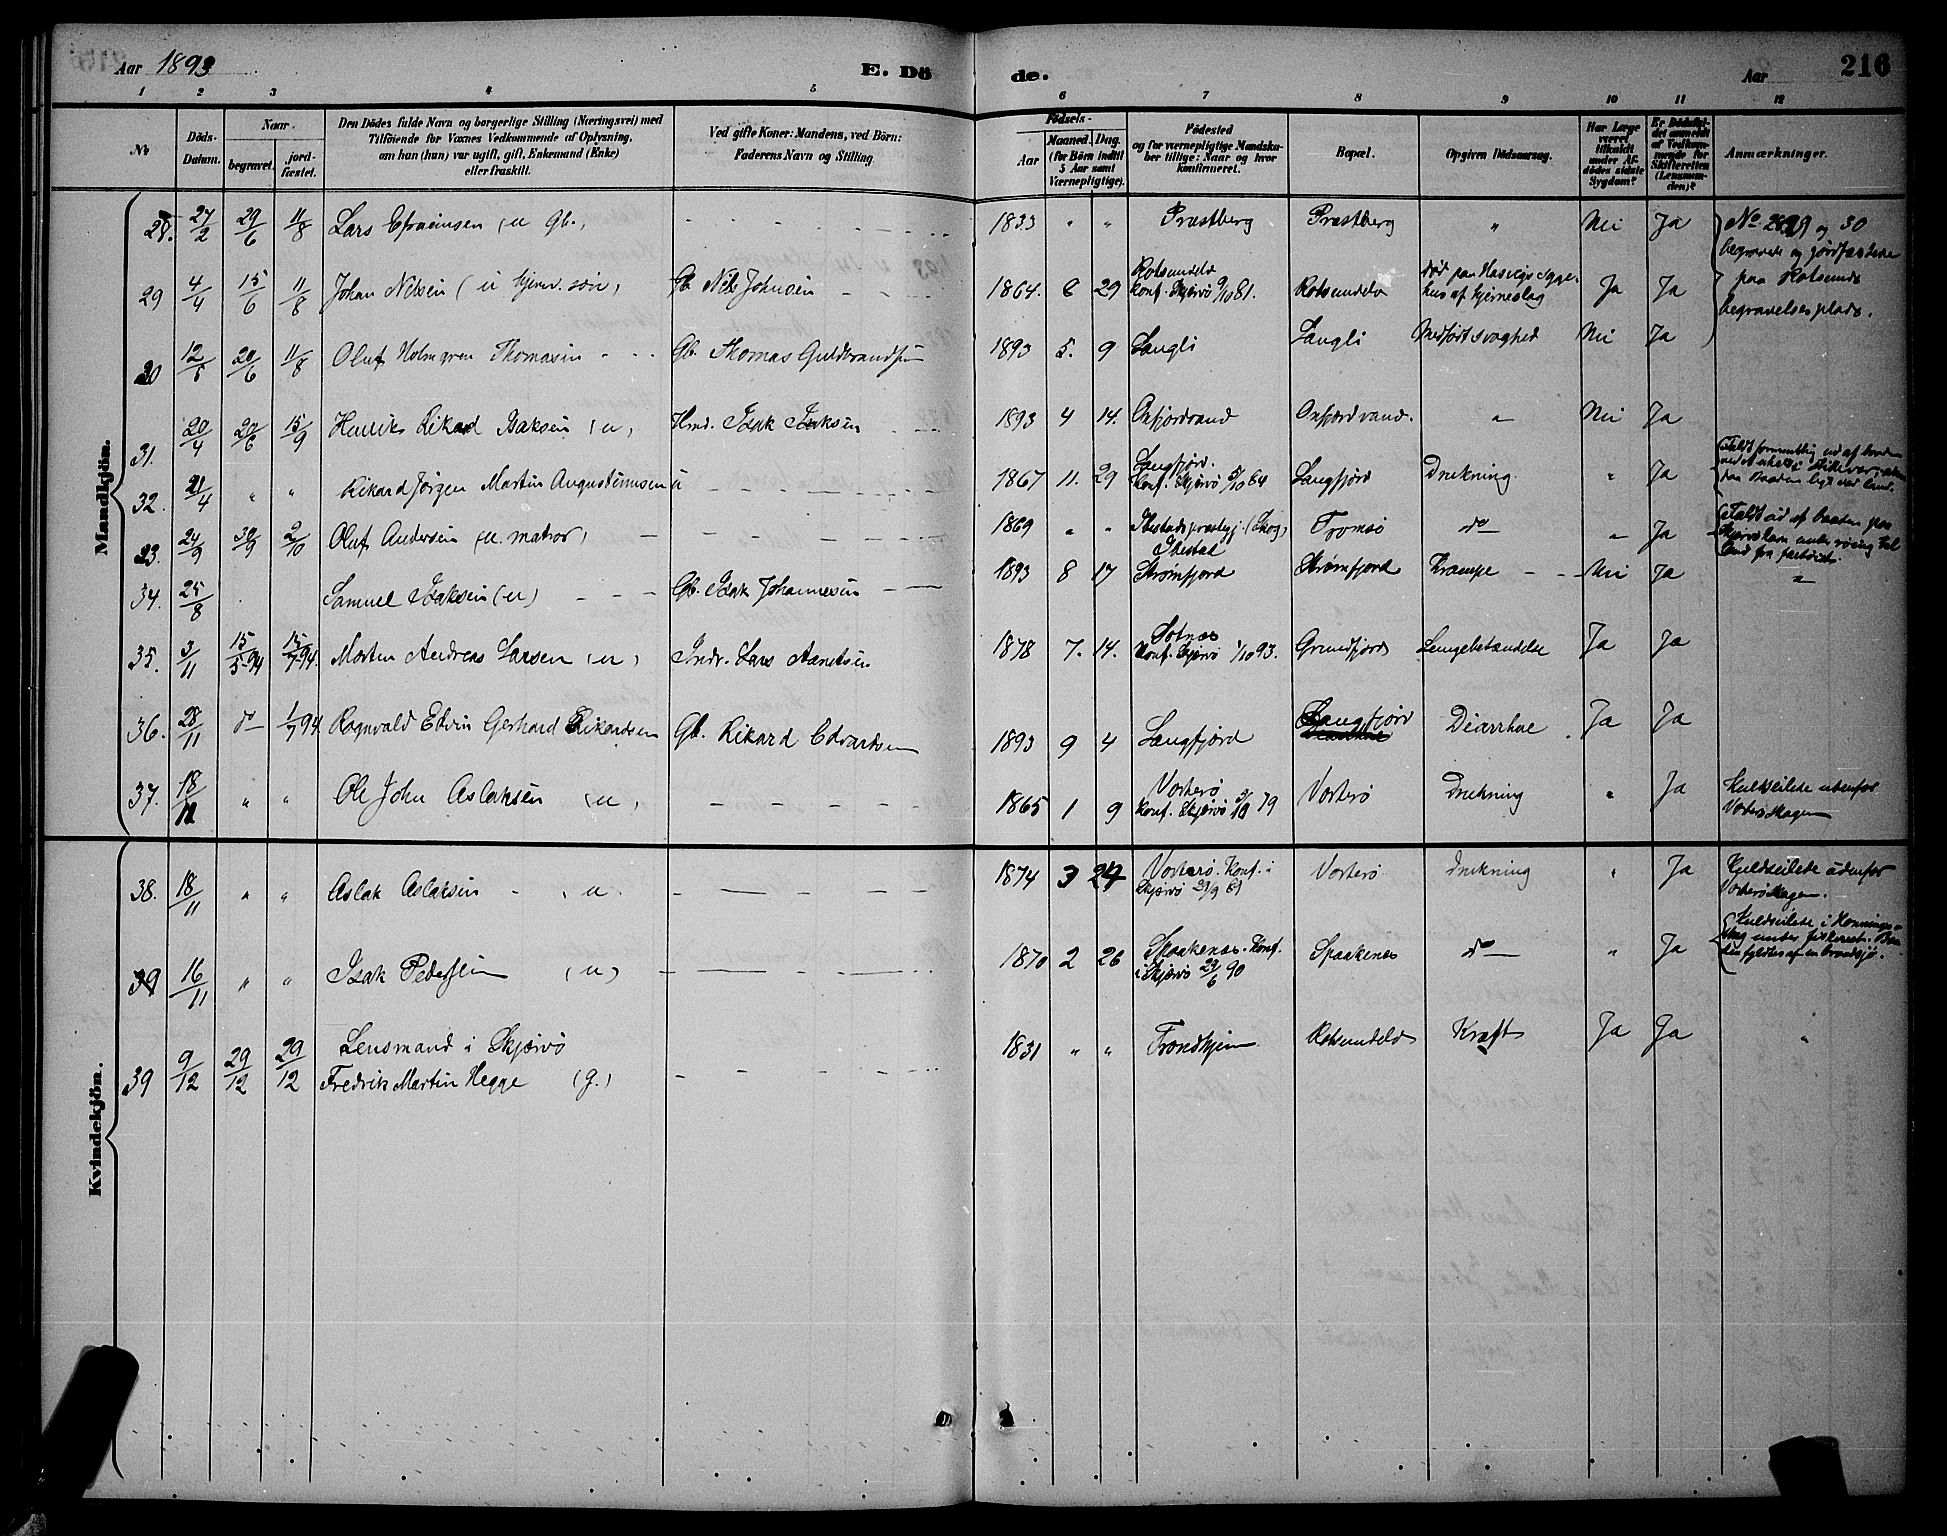 Aar 1893
E. Dö
de.
Aar
216
1 2 3 4 5 6 7 8 9 10 11 12
No
Döds-
Datum.
Naar
begravet.
jord-
fæstet.
Den Dödes fulde Navn og borgerlige Stilling (Næringsvei) med
Tilföiende for Voxnes Vedkommende af Oplysning,
om han (hun) var ugift, gift, Enkemand (Enke)
eller fraskilt.
Ved gifte Koner: Mandens, ved Börn:
Faderens Navn og Stilling.
Födsels-
Aar
Maaned. Dag.
(for Börn indtil
5 Aar samt
Værnepligtige).
Födested
og for værnepligtige Mandska-
ber tillige: Naar og hvor
konfirmeret.
Bopæl.
Opgiven Dödsaarsag.
Har Læge
været
tilkaldt
under Af-
dödes sidste
Sygdom?
Er Dödsfal-
det anmeldt
af Vedkom-
mende for
Skifteretten
(Lensman-
den)?
Anmærkninger.
Mandkjön.
28. 27/2 29/6 11/8 Lars Efraimsen (u Gb., 1833 " " Præstberg Præstberg " Nei Ja No 28, 29 og 30
begravede og jordfæstede
paa Rotsunds
begravelsesplads.
29 4/4 15/6 11/8 Johan Nilsen (u hjemv. søn, Gb. Nils Johnsen 1864. 6 29 Rotsundelv
Konf. Skjervö 9/10 81. Rotsundelv død paa Hasvigs Syge-
hus af hjerneslag Ja Ja
30 12/5 20/6 11/8 Oluf Holmgren Thomasen Gb. Thomas Guldbrandsen 1893 5. 9 Langli Langli Medfødt svaghed Nei Ja
31. 20/4 20/6 15/9 Henrik Rikard Isaksen (u, Hmd. Isak Isaksen 1893 4 14. Oxfjordvand Oxfjordvand. " Nei Ja
32. 21/4 " " Rikard Jörgen Martin Augustinussen u 1867 11. 29 Langfjord.
Konf. Skjervö 5/10 84 Langfjord Drukning. " Ja
33. 24/9 30/9 2/10 Oluf Andersen (u. matros, 1869 " " Ibestads præstegj. (Skog,
Ibestad Tromsø do " Ja Faldt ud af baaden paa
Skjervö havn under roing til
land fra fartöiet.
34. 25/8 Samuel Isaksen (u) Gb. Isak Johannesen 1893 8 17 Strømfjord Strømfjord Krampe Nei Ja "
35. 3/11 15/5-94 15/7-94. Morten Andreas Larsen (u, Indr. Lars Aanetsen 1878 7. 14. Sotnæs
Konf. Skjervö 1/10 93. Grundfjord Lungebetændelse Ja Ja
36. 28/11 do 1/7 94. Rognvald Edvin Gerhard Rikardsen Gb. Rikard Edvardsen 1893 9 4 Langfjord Langfjord Diarrhæ Ja Ja
37. 18/11 " " Ole John Aslaksen (u, 1865 1 9 Vorterö
Konf. Skjervö 5/10 79 Vorterö Drukning " Ja Kulseilede udenfor
Vorterskagen
Kvindekjön.
38. 18/11 " " Aslak Aslaksen (u 1874 3 27 Vorterö. Konf. i
Skjervö Vorterö Drukning " Ja Kuldseilede udenfor
Vorteröskagen.
39 16/11 " " Isak Pedersen (u) 1870 2 26 Spaakenæs. Konf.
i Skjervö 29/6 90 Spaakenæs do " Ja Kuldseilede i Honnings-
vaag under fiskeret. Baa-
den fyldtes af en brandsjø.
39 9/12 29/12 29/12 Lensmand i Skjærvö
Fredrik Martin Hegge (g.) 1831 " " Trondhjem Rotsundelv Kræft Ja Ja "